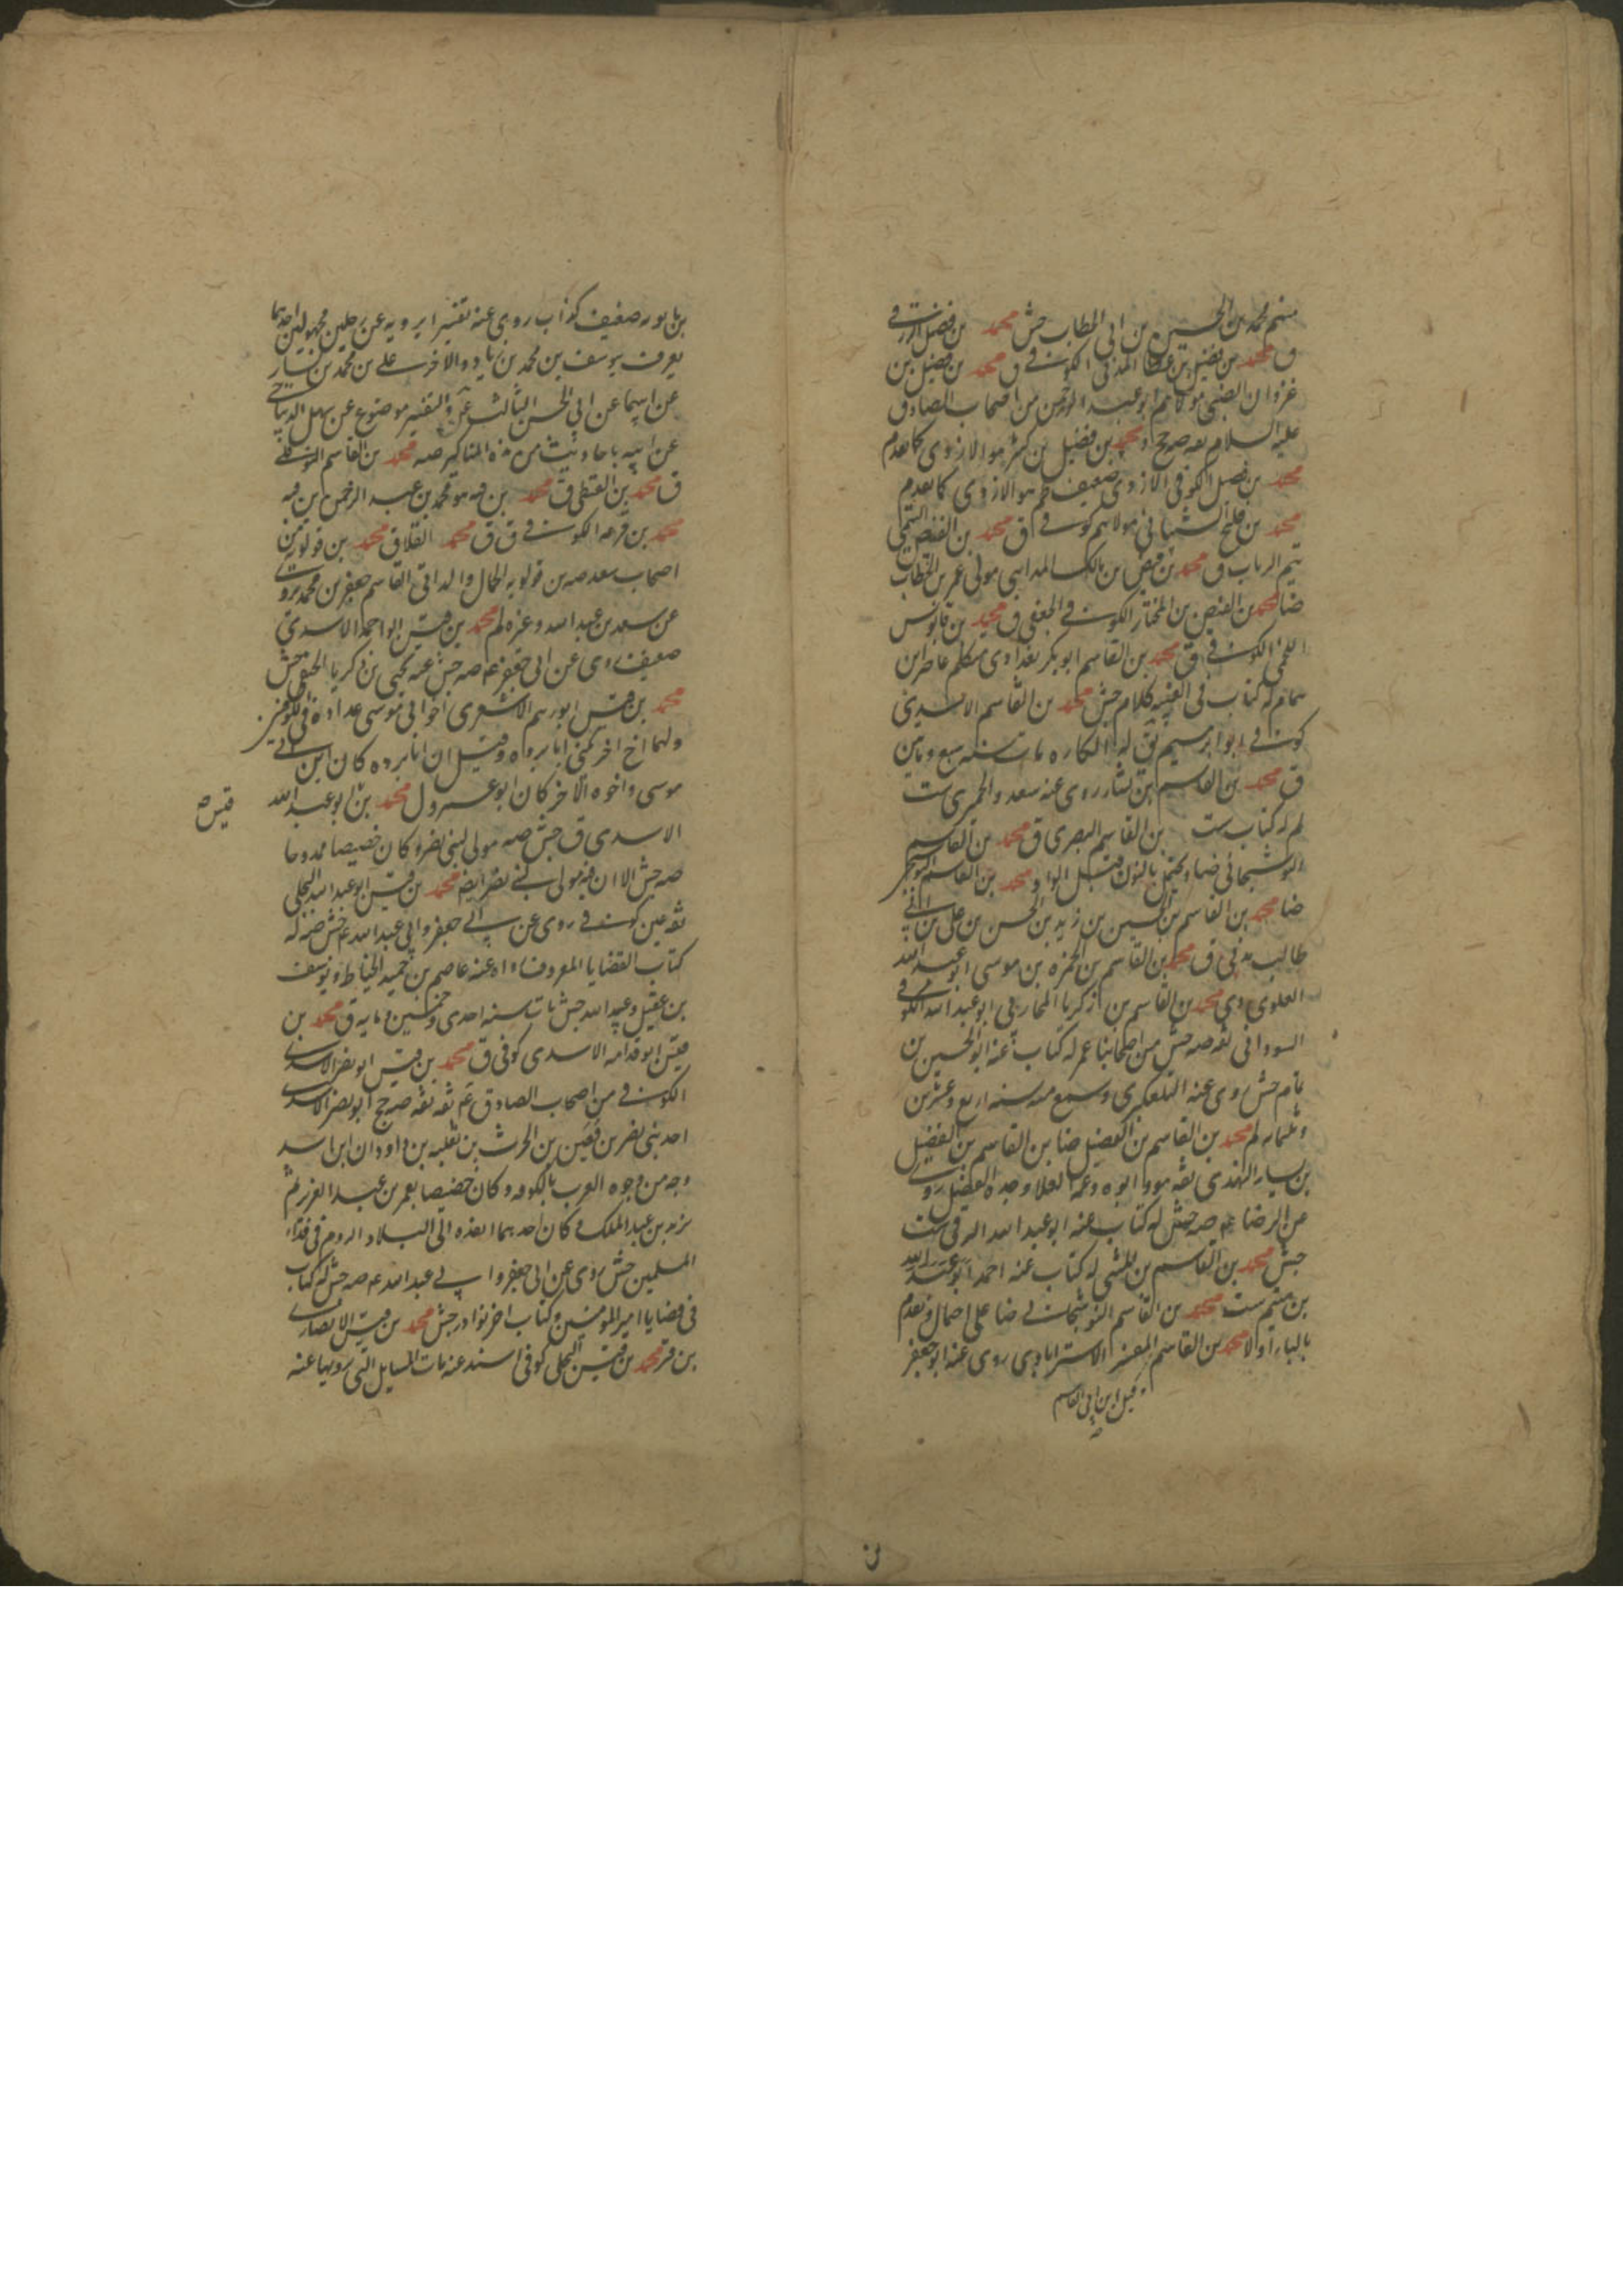 منهم محمد بن الحسين بن ابى الخطاب جش محمد بن فضل الازرق فى
ق محمد بن فضيل بن عطا المدنى الكوفى ق محمد بن فضيل بن
غزوان الضبى مولاهم ابو عبد الرحمن من اصحاب الصادق
عليه السلام ثقه صه جخ و محمد بن فضيل بن كثير هو الازدى كما تقدم
محمد بن فضل الكوفى الازدى ضعيف ظم هو الازدى كما تقدم
محمد بن فليح الشيبانى مولاهم كوفى ق محمد بن الفيض التيمى
تيم الرباب ق محمد بن فيض بن مالك المداينى مولى عمر بن الخطاب
ضا محمد بن الفيض بن المختار الكوفى الجعفى ق محمد بن قابوس
اللخمى الكوفى ق محمد بن القاسم ابو بكر بغدادى متكلم عاصر ابن
همام له كتاب فى الغيبه كلام جش محمد بن القاسم الاسدى
كوفى ابو ابرهيم يق له الكاره مات سنه سبع و مايتين
ق محمد بن القاسم بن بشار روى عنه سعد و الحميرى ست
لم له كتاب ست بن القاسم البصرى ق محمد بن القاسم
البوشنجانى ضا و يحتمل بالنون قبل الواو محمد بن القاسم
ضا محمد بن القاسم بن الحسين بن زيد بن الحسن بن على بن ابى
طالب مدنى ق محمد بن القاسم بن حمزه بن موسى ابو عبد الله
العلوى دى محمد بن القاسم بن زكريا المحاربى ابو عبد الله الكوفى
السودانى ثقه صه جش من اصحابنا عمر له كتاب عنه ابو الحسين بن
تمام جش روى عنه التلعكبرى و سمع منه سنه اربع و عشرين
و ثلثمايه لم محمد بن القاسم بن الفضيل ضا بن القاسم بن الفضيل
بن يسار النهدى ثقه هو و ابوه و عمه العلا و جده الفضيل روى
عن الرضا ع صه جش له كتاب عنه ابو عبد الله البرقى ست
جش محمد بن القاسم بن المثنى له كتاب عنه احمد ابو عبد الله
بن ميثم ست محمد بن القاسم النوشجانى ضا على احتمال و تقدم
بالباء اولا محمد بن القاسم المفسر الاسترابادى روى عنه ابو جعفر
و قيل ابن ابى القاسم
صه
بن بابويه ضعيف كذاب روى عنه تفسيرا يرويه عن رجلين مجهولين احدهما
يعرف بيوسف بن محمد بن زياد و الاخر على بن محمد بن يسار
عن ابيهما عن ابى الحسن الثالث ع و التفسير موضوع عن سهل الديباجى
عن ابيه باحاديث من هذه المناكير صه محمد بن القاسم النوفلى
ق محمد بن القبطى ق محمد بن قبه هو محمد بن عبد الرحمن بن قبه
محمد بن قرعه الكوفى ق ق محمد القلا ق محمد بن قولويه من
اصحاب سعد صه بن قولويه الجمال والد ابى القاسم جعفر بن محمد يروى
عن سعد بن عبد الله و غيره لم محمد بن قيس ابو احمد الاسدى
ضعيف روى عن ابى جعفر ع صه جش عنه يحيى بن زكريا الحنفى جش
محمد بن قيس ابو رهم الاشعرى اخو ابى موسى عداده فى الكوفيين
و لهما اخ اخر يكنى ابا برده و قيل ان ابا برده كان ابن ابى
موسى و اخوه الاخر كان ابو عمر و ل محمد بن ابو عبد الله
قيس صه
الاسدى ق جش صه مولى لبنى نصر و كان خصيصا ممدوحا
صه جش الا ان فيه مولى لبنى نصر ايضه محمد بن قيس ابو عبد الله البجلى
ثقه عين كوفى روى عن ابى جعفر و ابى عبد الله ع جش صه له
كتاب القضايا المعروف رواه عنه عاصم بن حميد الحناط و يوسف
بن عقيل و عبيد الله جش مات سنه احدى و خمسين و مايه ق محمد بن
قيس ابو قدامه الاسدى كوفى ق محمد بن قيس ابو نصر الاسدى
الكوفى من اصحاب الصادق ع ثقه ثقه صه جخ ابو نصر الاسدى
احد بنى نصر بن قعين بن الحرث بن ثعلبه بن داودان ابن اسد
وجه من وجوه العرب بالكوفه و كان خصيصا بعمر بن عبد العزيز ثم
يزيد بن عبد الملك و كان احدهما انفذه الى البلاد الروم فى فداء
المسلمين جش روى عن ابى جعفر و ابى عبد الله ع صه جش له كتاب
فى قضايا امير المومنين و كتاب اخر نوادر جش محمد بن قيس الانصارى
بن قر محمد بن قيس البجلى كوفى اسند عنه مات المسايل التى يرويها عنه